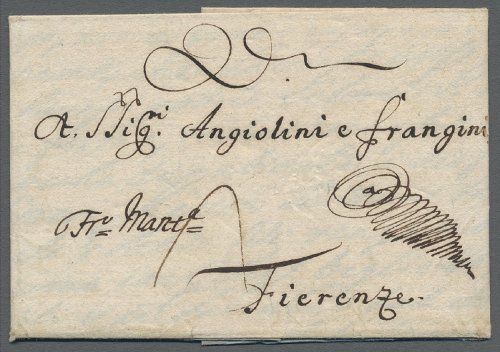 A. SSig.ni Angiolini e frangini
Fr.o Mant.a
Fierenze.